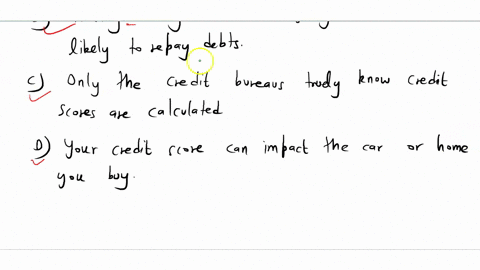 likely to repay debts.
C) Only the credit bureaus trudy know credit
scores are calculated
D) Your credit score can impact the car or home
you buy.